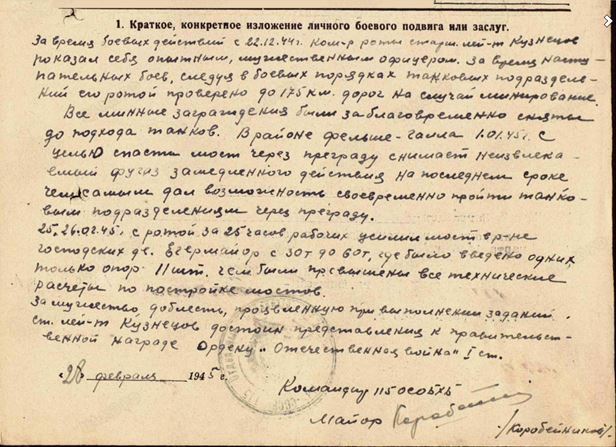 1. Краткое, конкретное изложение личного боевого подвига или заслуг.
За время боевых действий с 22.12.44г. Ком-р роты старш. лей-т Кузнецов
показал себя опытным, мужественным офицером. За время насту-
пательных боев, следуя в боевых порядках танковых подразделе-
ний его ротой проверено до 175 км. дорог на случай минирование.
Все минные заграждения были заблаговременно сняты
до подхода танков. В районе фельше-Галла 1.01.45г. с
целью спасти мост через преграду снимает неизвлека-
емый фугас замедленного действия на последнем сроке
чем самым дал возможность своевременно пройти танко-
вым подразделениям через преграду.
25, 26.02.45г. с ротой за 25 часов рабочих усилил мост в р-не
господских дв. Ечермайор с 30т до 60т, где было введено одних
только опор 11шт. чем были превышены все технические
расчеты по постройке мостов.
За мужество, доблесть, проявленную при выполнении заданий
ст. лей-т Кузнецов достоин представления к правительст-
венной награде Ордену „Отечественная война" I ст.
„28" февраля 1945 г.
Командир 115 ОСОБХЬ
Майор
/Коробейников/